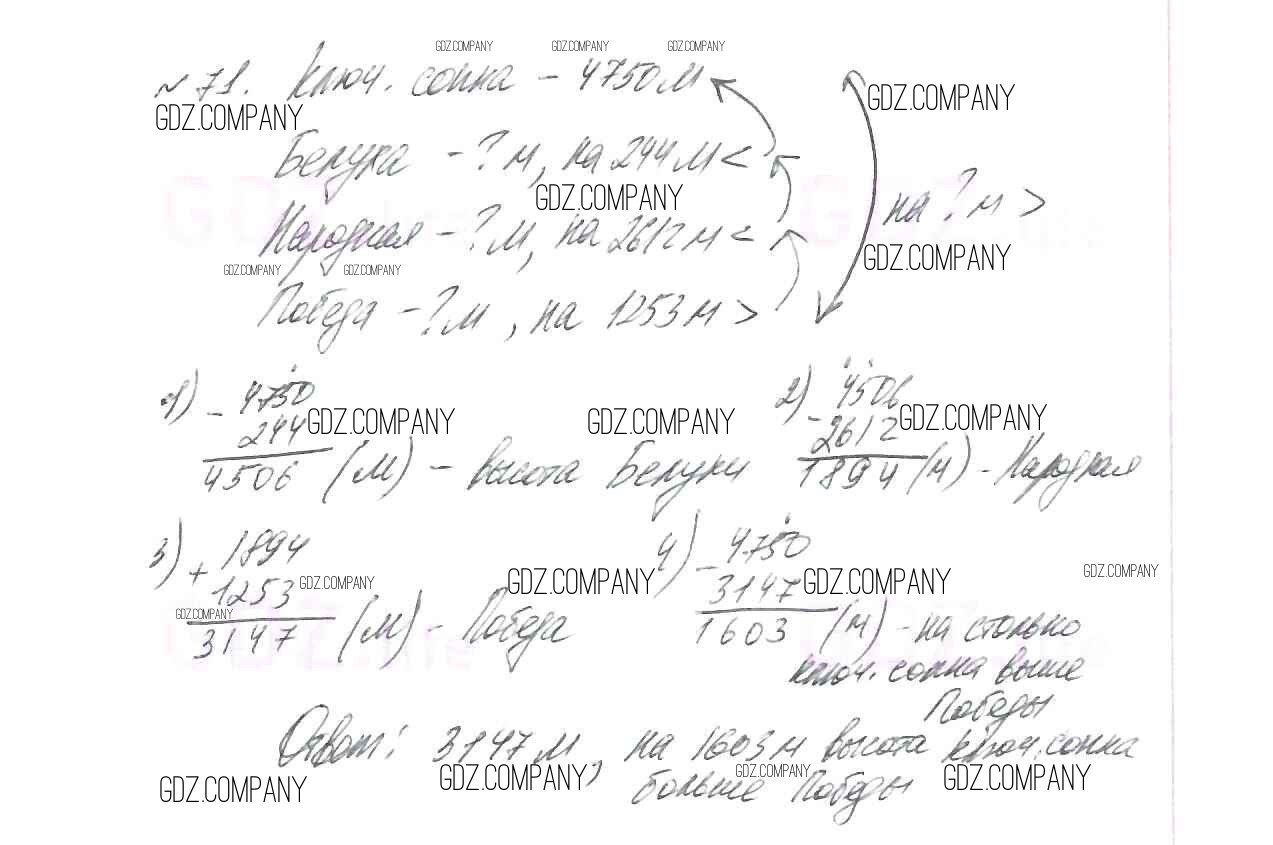 GDZ.COMPANY GDZ.COMPANY GDZ.COMPANY
№ 71. Ключ. сопка – 4750 м
GDZ.COMPANY
GDZ.COMPANY
Белуха – ? м, на 244 м <
GDZ.COMPANY
на ? м >
Народная – ? м, на 2612 м <
GDZ.COMPANY
GDZ.COMPANY GDZ.COMPANY
Победа – ? м, на 1253 м >
1) – 4750
244
4506 (м) – высота Белухи
GDZ.COMPANY GDZ.COMPANY
2) – 4506
2612
1894 (м) – Народная
GDZ.COMPANY
3) + 1894
1253
3147 (м) – Победа
GDZ.COMPANY
GDZ.COMPANY
GDZ.COMPANY
4) – 4750
3147
1603 (м) – на столько
ключ. сопка выше
Победы
GDZ.COMPANY
GDZ.COMPANY
Ответ: 3147 м, на 1603 м высота ключ. сопка
больше Победы
GDZ.COMPANY GDZ.COMPANY GDZ.COMPANY GDZ.COMPANY